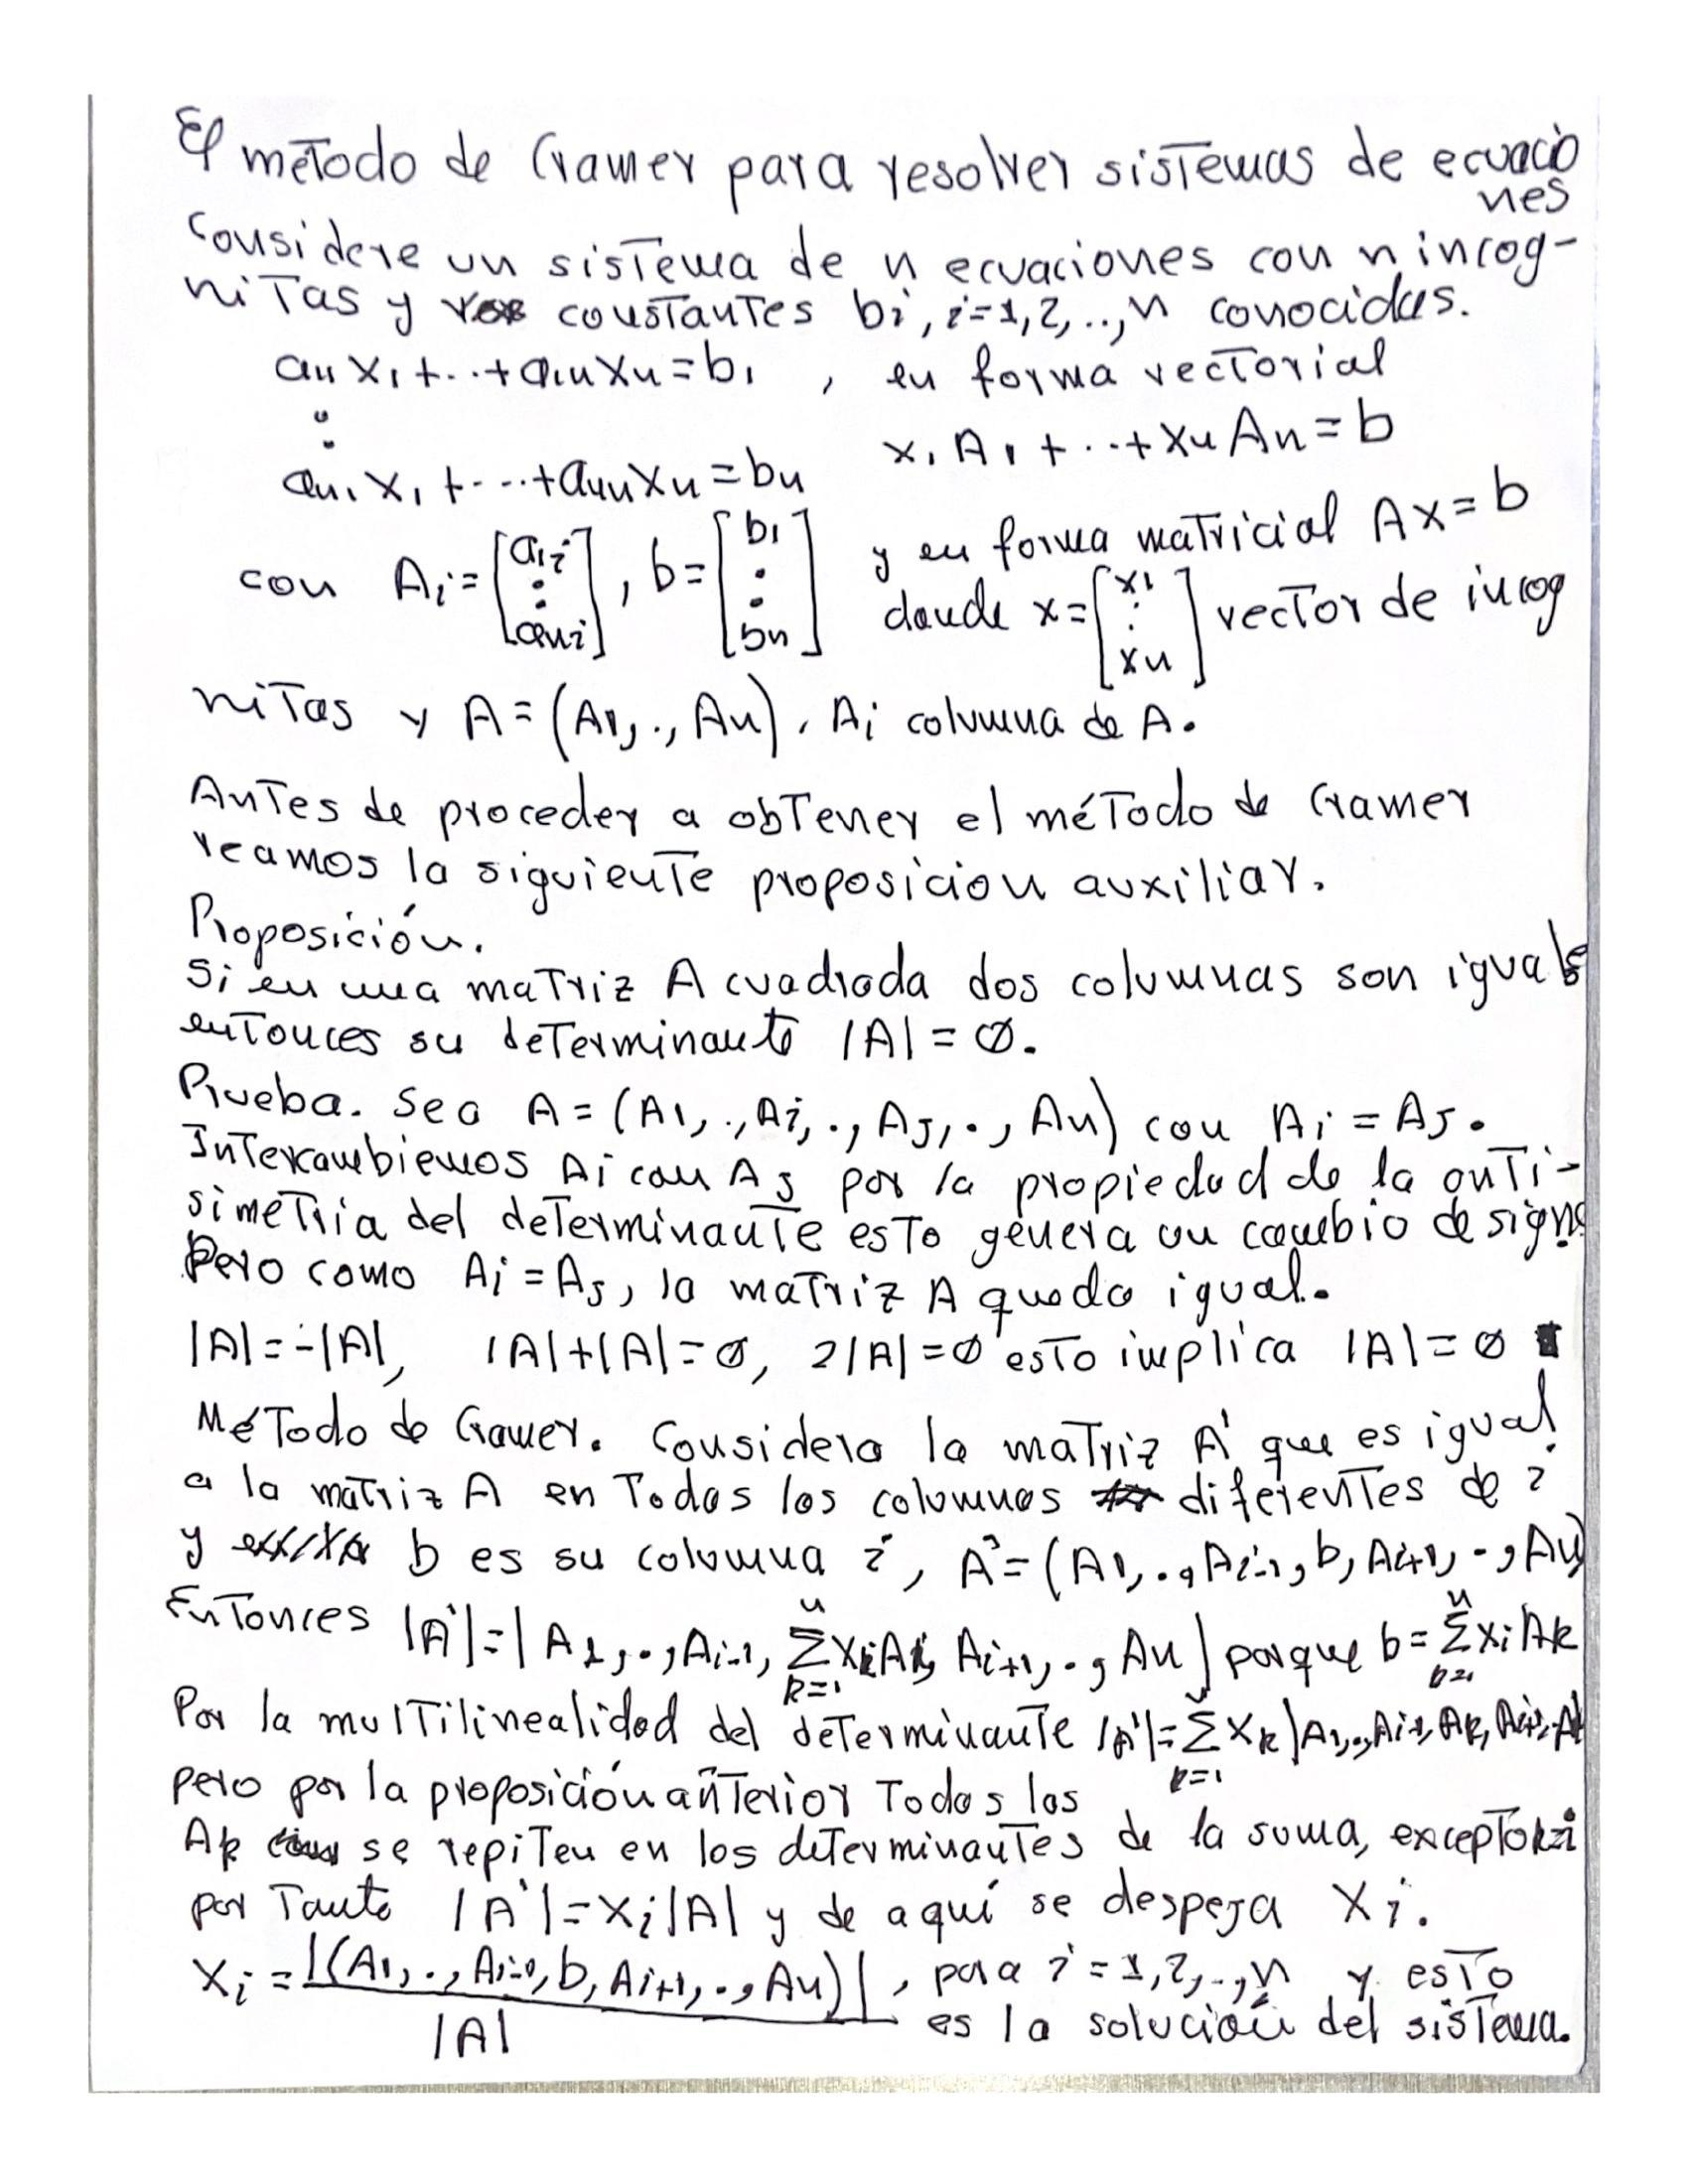 El método de Cramer para resolver sistemas de ecuacio
nes
Considere un sistema de n ecuaciones con n incog-
nitas y constantes bi, i=1,2,..,n conocidas.
a11 x1+..+a1n xn = b1 , en forma vectorial
⋮
x1 A1 +..+ xn An = b
an1 x1 +--..+ ann xn = bn
con Ai = [a1i ⋮ ani] , b = [b1 ⋮ bn] y en forma matricial Ax = b
donde x = [x1 ⋮ xn] vector de incog
nitas y A = (A1,., An), Ai columna de A.
Antes de proceder a obtener el método de Cramer
veamos la siguiente proposicion auxiliar.
Proposición.
Si en una matriz A cuadrada dos columnas son iguales
entonces su determinante |A| = Ø.
Prueba. Sea A = (A1,., Ai,., AJ,., An) con Ai = AJ.
Intercambiemos Ai con AJ por la propiedad de la anti-
simetria del determinante esto genera un cambio de signo
Pero como Ai = AJ, la matriz A queda igual.
|A| = -|A|, |A|+|A| = Ø, 2|A| = Ø esto implica |A| = Ø ∎
Método de Cramer. Considera la matriz A' que es igual
a la matriz A en Todas las columnas diferentes de i
y b es su columna i, A' = (A1,., Ai-1, b, Ai+1, ., An)
Entonces |A'| = | A1,., Ai-1, Σ_{k=1}^{n} xk Ak, Ai+1,., An | porque b = Σ_{k=1}^{n} xi Ak
Por la multilinealidad del determinante |A'| = Σ_{k=1}^{n} xk |A1,., Ai-1, Ak, Ai+1,. An|
pero por la proposición anterior Todos los
Ak se repiten en los determinantes de la suma, excepto k=i
por Tanto |A'| = xi |A| y de aquí se despeja xi.
xi = |(A1,., Ai-1, b, Ai+1,., An)| / |A| , para i = 1,2,..,n y esto
es la solución del sistema.